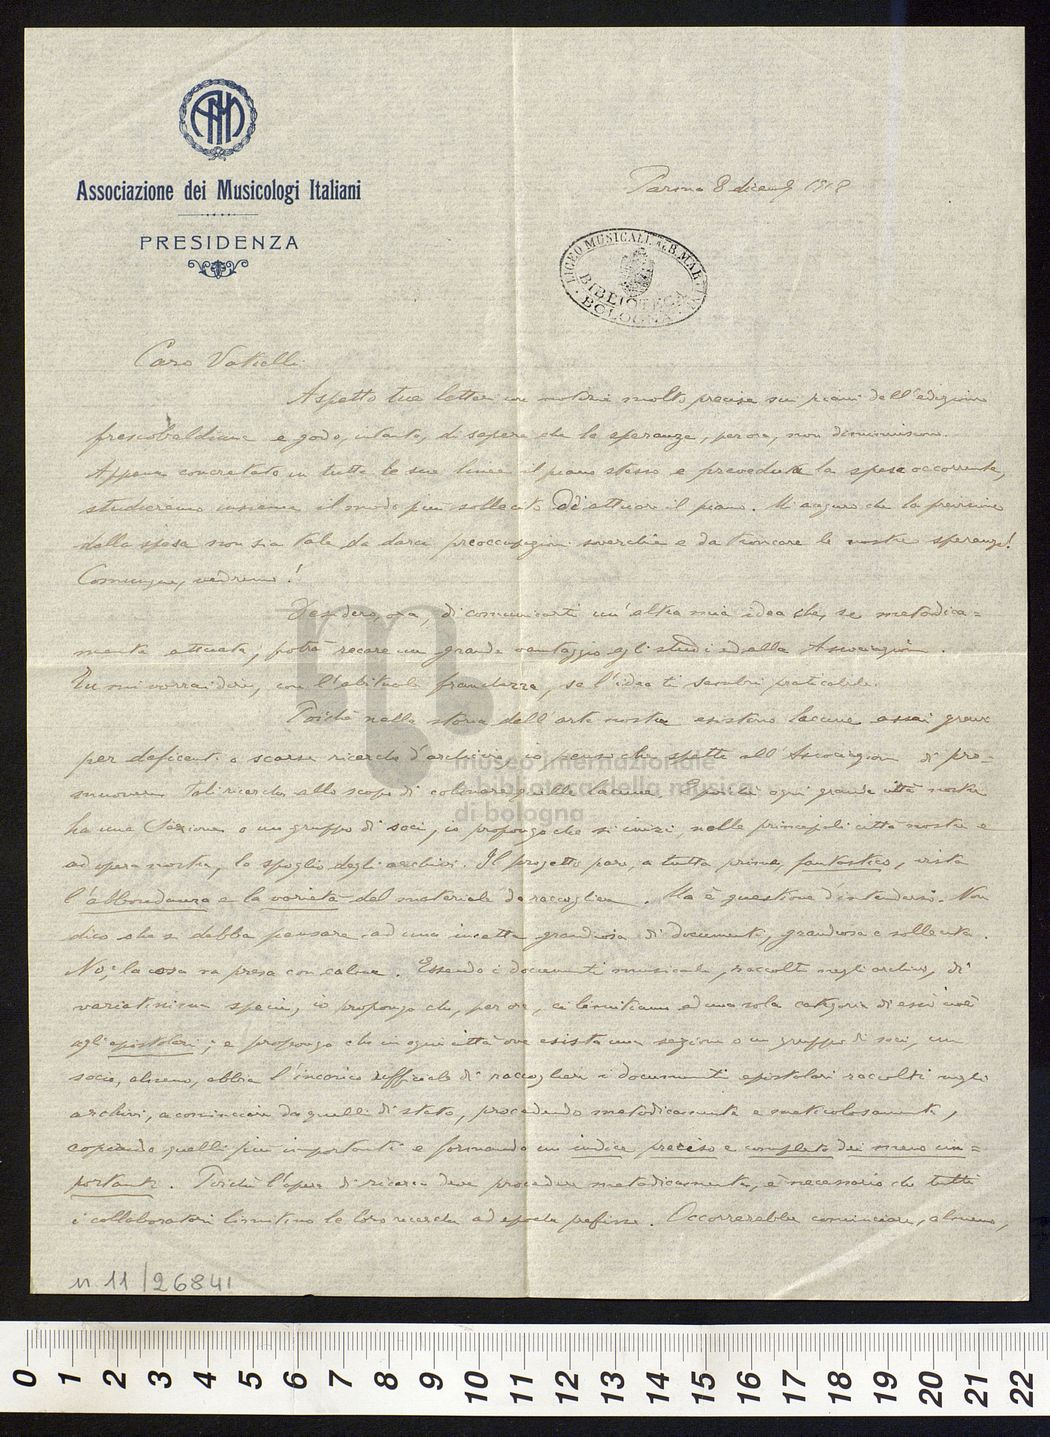 Associazione dei Musicologi Italiani
PRESIDENZA
Parma 8 dicemb 1918
LICEO MUSICALE G. B. MARTINI
BIBLIOTECA
BOLOGNA
Caro Vatielli
Aspetto tue lettere con notizie molto precise sui piani dell'edizione
frescobaldiana e godo, intanto, di sapere che le speranze, per ora, non diminuiscono.
Appena concretato in tutte le sue linee il piano stesso e preveduta la spesa occorrente,
studieremo insieme il modo più sollecito di attuare il piano. Mi auguro che la previsione
della spesa non sia tale da darci preoccupazioni soverchie e da troncare le nostre speranze!
Comunque, vedremo!
Desidero, ora, di comunicarti un'altra mia idea che, se metodica=
mente attuata, potrà recare un grande vantaggio agli studi ed alla Associazione.
Tu mi vorrai dire, con l'abituale franchezza, se l'idea ti sembri praticabile.
Poichè nella storia dell'arte nostra esistono lacune assai gravi
per deficenti o scarse ricerche d'archivio, io penso che spetti all'Associazione di pro-
muovere tali ricerche allo scopo di colmare quelle lacune. E poichè ogni grande città nostra
ha una Sezione o un gruppo di soci, io propongo che si inizi, nelle principali città nostre e
ad opera nostra, lo spoglio degli archivi. Il progetto pare, a tutta prima, fantastico, vista
l'abbondanza e la varietà del materiale da raccogliere. Ma è questione d'intendersi. Non
dico che si debba pensare ad una incetta grandiosa di documenti, grandiosa e sollecita.
No: la cosa va presa con calma. Essendo i documenti musicali, raccolti negli archivi, di
variatissima specie, io propongo che, per ora, ci limitiamo ad una sola categoria di essi cioè
agli epistolari; e propongo che in ogni città ove esista una sezione o un gruppo di soci, un
socio, almeno, abbia l'incarico ufficiale di raccogliere i documenti epistolari raccolti negli
archivi, a cominciare da quelli di stato, procedendo metodicamente e meticolosamente,
copiando quelli più importanti e formando un indice preciso e completo dei meno im=
portanti. Poichè l'opera di ricerca deve procedere metodicamente, è necessario che tutti
i collaboratori limitino le loro ricerche ad epoche prefisse. Occorrerebbe cominciare, almeno,
n. 11/26841
museo internazionale
e biblioteca della musica
di bologna
0 1 2 3 4 5 6 7 8 9 10 11 12 13 14 15 16 17 18 19 20 21 22